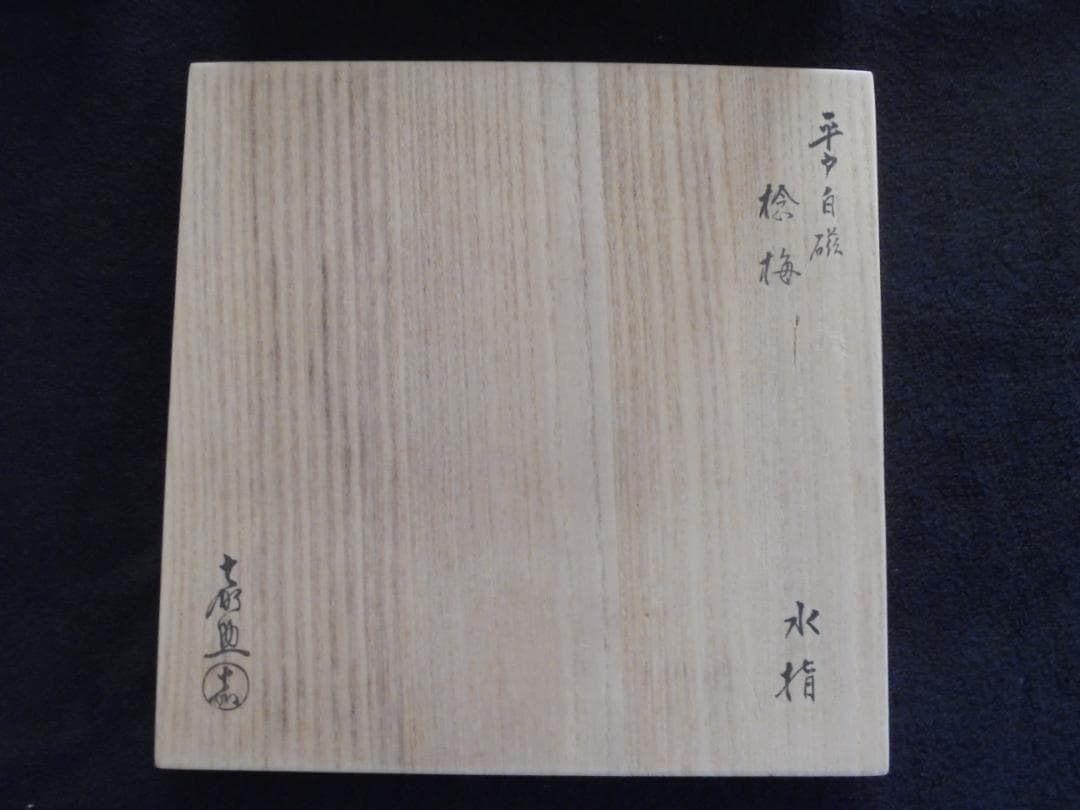 平戸白磁
捻梅
水指